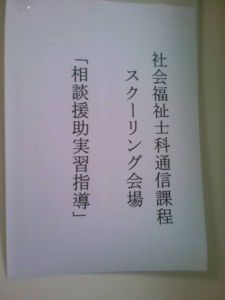 社会福祉士科通信課程
スクーリング会場
「相談援助実習指導」